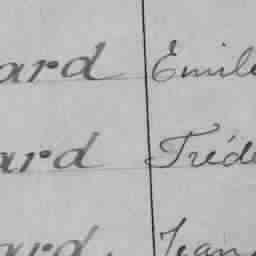 ard Emile
ard Fréde
ard. Jean